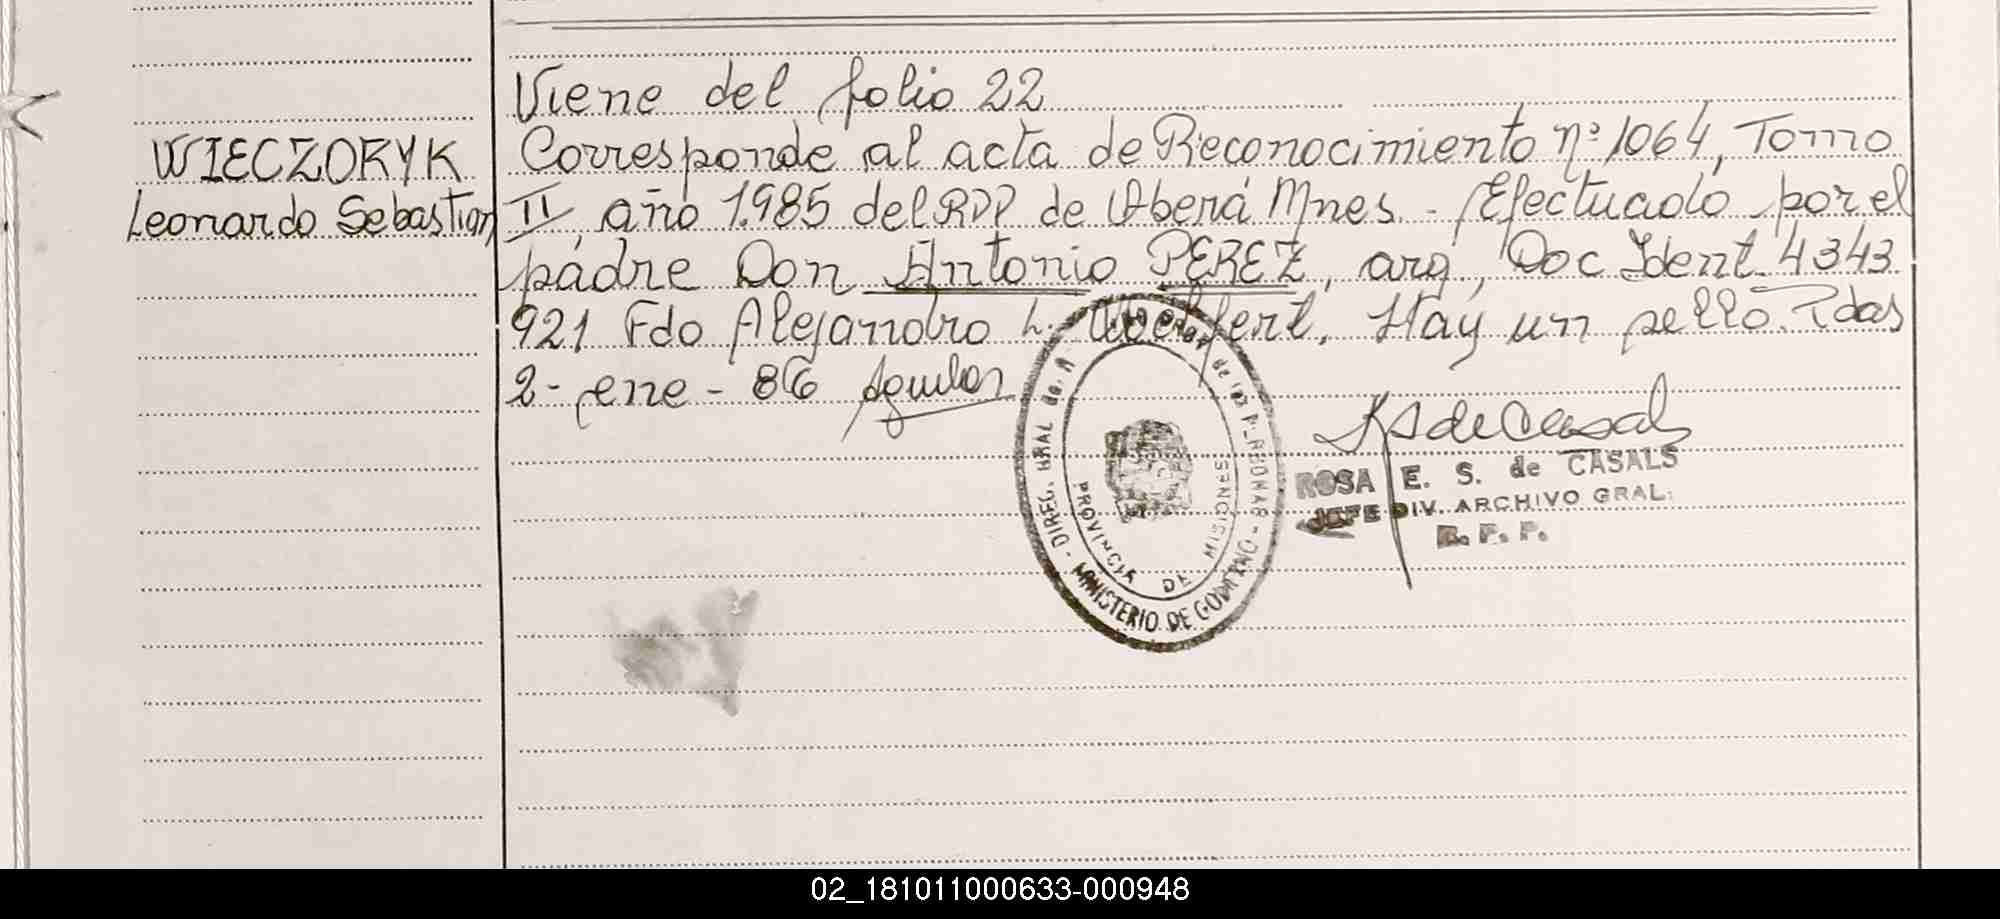 Viene del folio 22
WIECZORYK
Leonardo Sebastian
Corresponde al acta de Reconocimiento nº 1064, Tomo
II, año 1.985 del RPP de Oberá Mnes. - Efectuado por el
padre Don Antonio PEREZ, arg, Doc Ident. 4343
921 Fdo Alejandro L. Hay un sello. Pdas
2 - ene - 86
DIREC. GRAL de.
de las PERSONAS -
PROVINCIA DE MISIONES
MINISTERIO DE GOBIERNO -
ROSA E. S. de CASALS
JEFE DIV. ARCHIVO GRAL.
R. P. P.
02_181011000633-000948